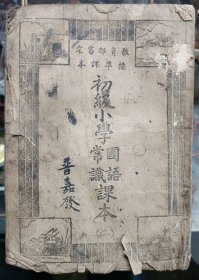 教育部審定
標準課本
初級小學
國語
常識
課本
晉嘉發